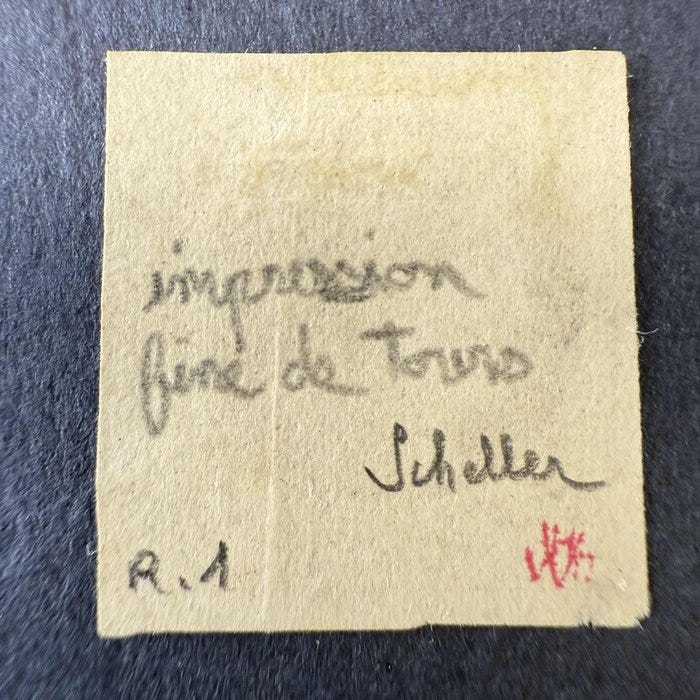 impression
fine de Tours
Scheller
R.1